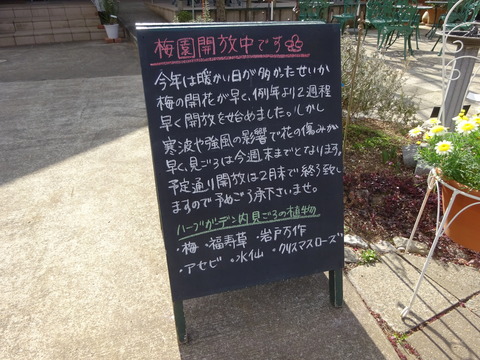 梅園開放中です
今年は暖かい日が多かったせいか
梅の開花が早く、例年より2週程
早く開放をはじめました。しかし
寒波や強風の影響で花の傷みが
早く、見ごろは今週末までとなります。
予定通り開放は2月末で終う致し
ますので予めご了承下さいませ。
ハーブガーデン内見ごろの植物
・梅 ・福寿草 ・岩戸万作
・アセビ ・水仙 ・クリスマスローズ